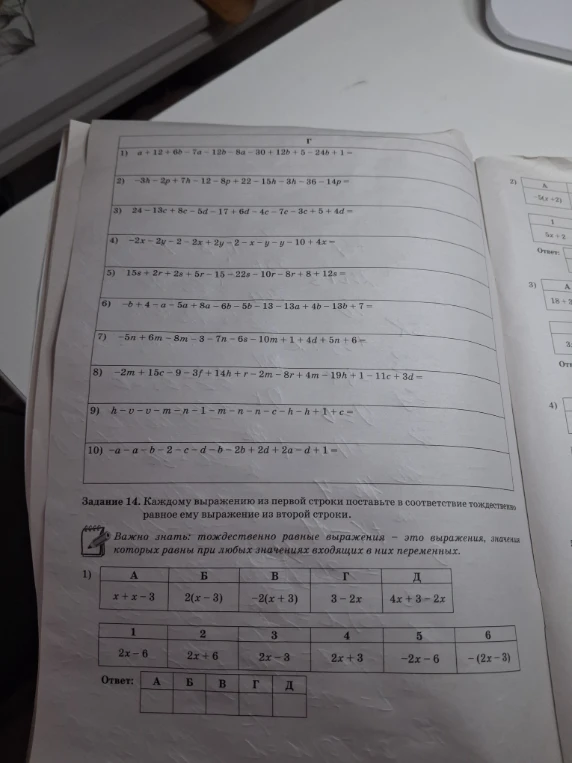 Г
1) a + 12 + 6b − 7a − 12b − 8a − 30 + 12b + 5 − 24b + 1 =
2) −3h − 2p + 7h − 12 − 8p + 22 − 15h − 3h − 36 − 14p =
3) 24 − 13c + 8c − 5d − 17 + 6d − 4c − 7c − 3c + 5 + 4d =
4) −2x − 2y − 2 − 2x + 2y − 2 − x − y − y − 10 + 4x =
5) 15s + 2r + 2s + 5r − 15 − 22s − 10r − 8r + 8 + 12s =
6) −b + 4 − a − 5a + 8a − 6b − 5b − 13 − 13a + 4b − 13b + 7 =
7) −5n + 6m − 8m − 3 − 7n − 6s − 10m + 1 + 4d + 5n + 6 =
8) −2m + 15c − 9 − 3f + 14h + r − 2m − 8r + 4m − 19h + 1 − 11c + 3d =
9) h − v − v − m − n − 1 − m − n − n − c − h − h + 1 + c =
10) −a − a − b − 2 − c − d − b − 2b + 2d + 2a − d + 1 =
Задание 14. Каждому выражению из первой строки поставьте в соответствие тождественно
равное ему выражение из второй строки.
Важно знать: тождественно равные выражения – это выражения, значения
которых равны при любых значениях входящих в них переменных.
1)
А Б В Г Д
x + x − 3 2(x − 3) −2(x + 3) 3 − 2x 4x + 3 − 2x
1 2 3 4 5 6
2x − 6 2x + 6 2x − 3 2x + 3 −2x − 6 −(2x − 3)
Ответ: А Б В Г Д
2)
А
−5(x+2)
1
5x + 2
Ответ:
3)
А
4)